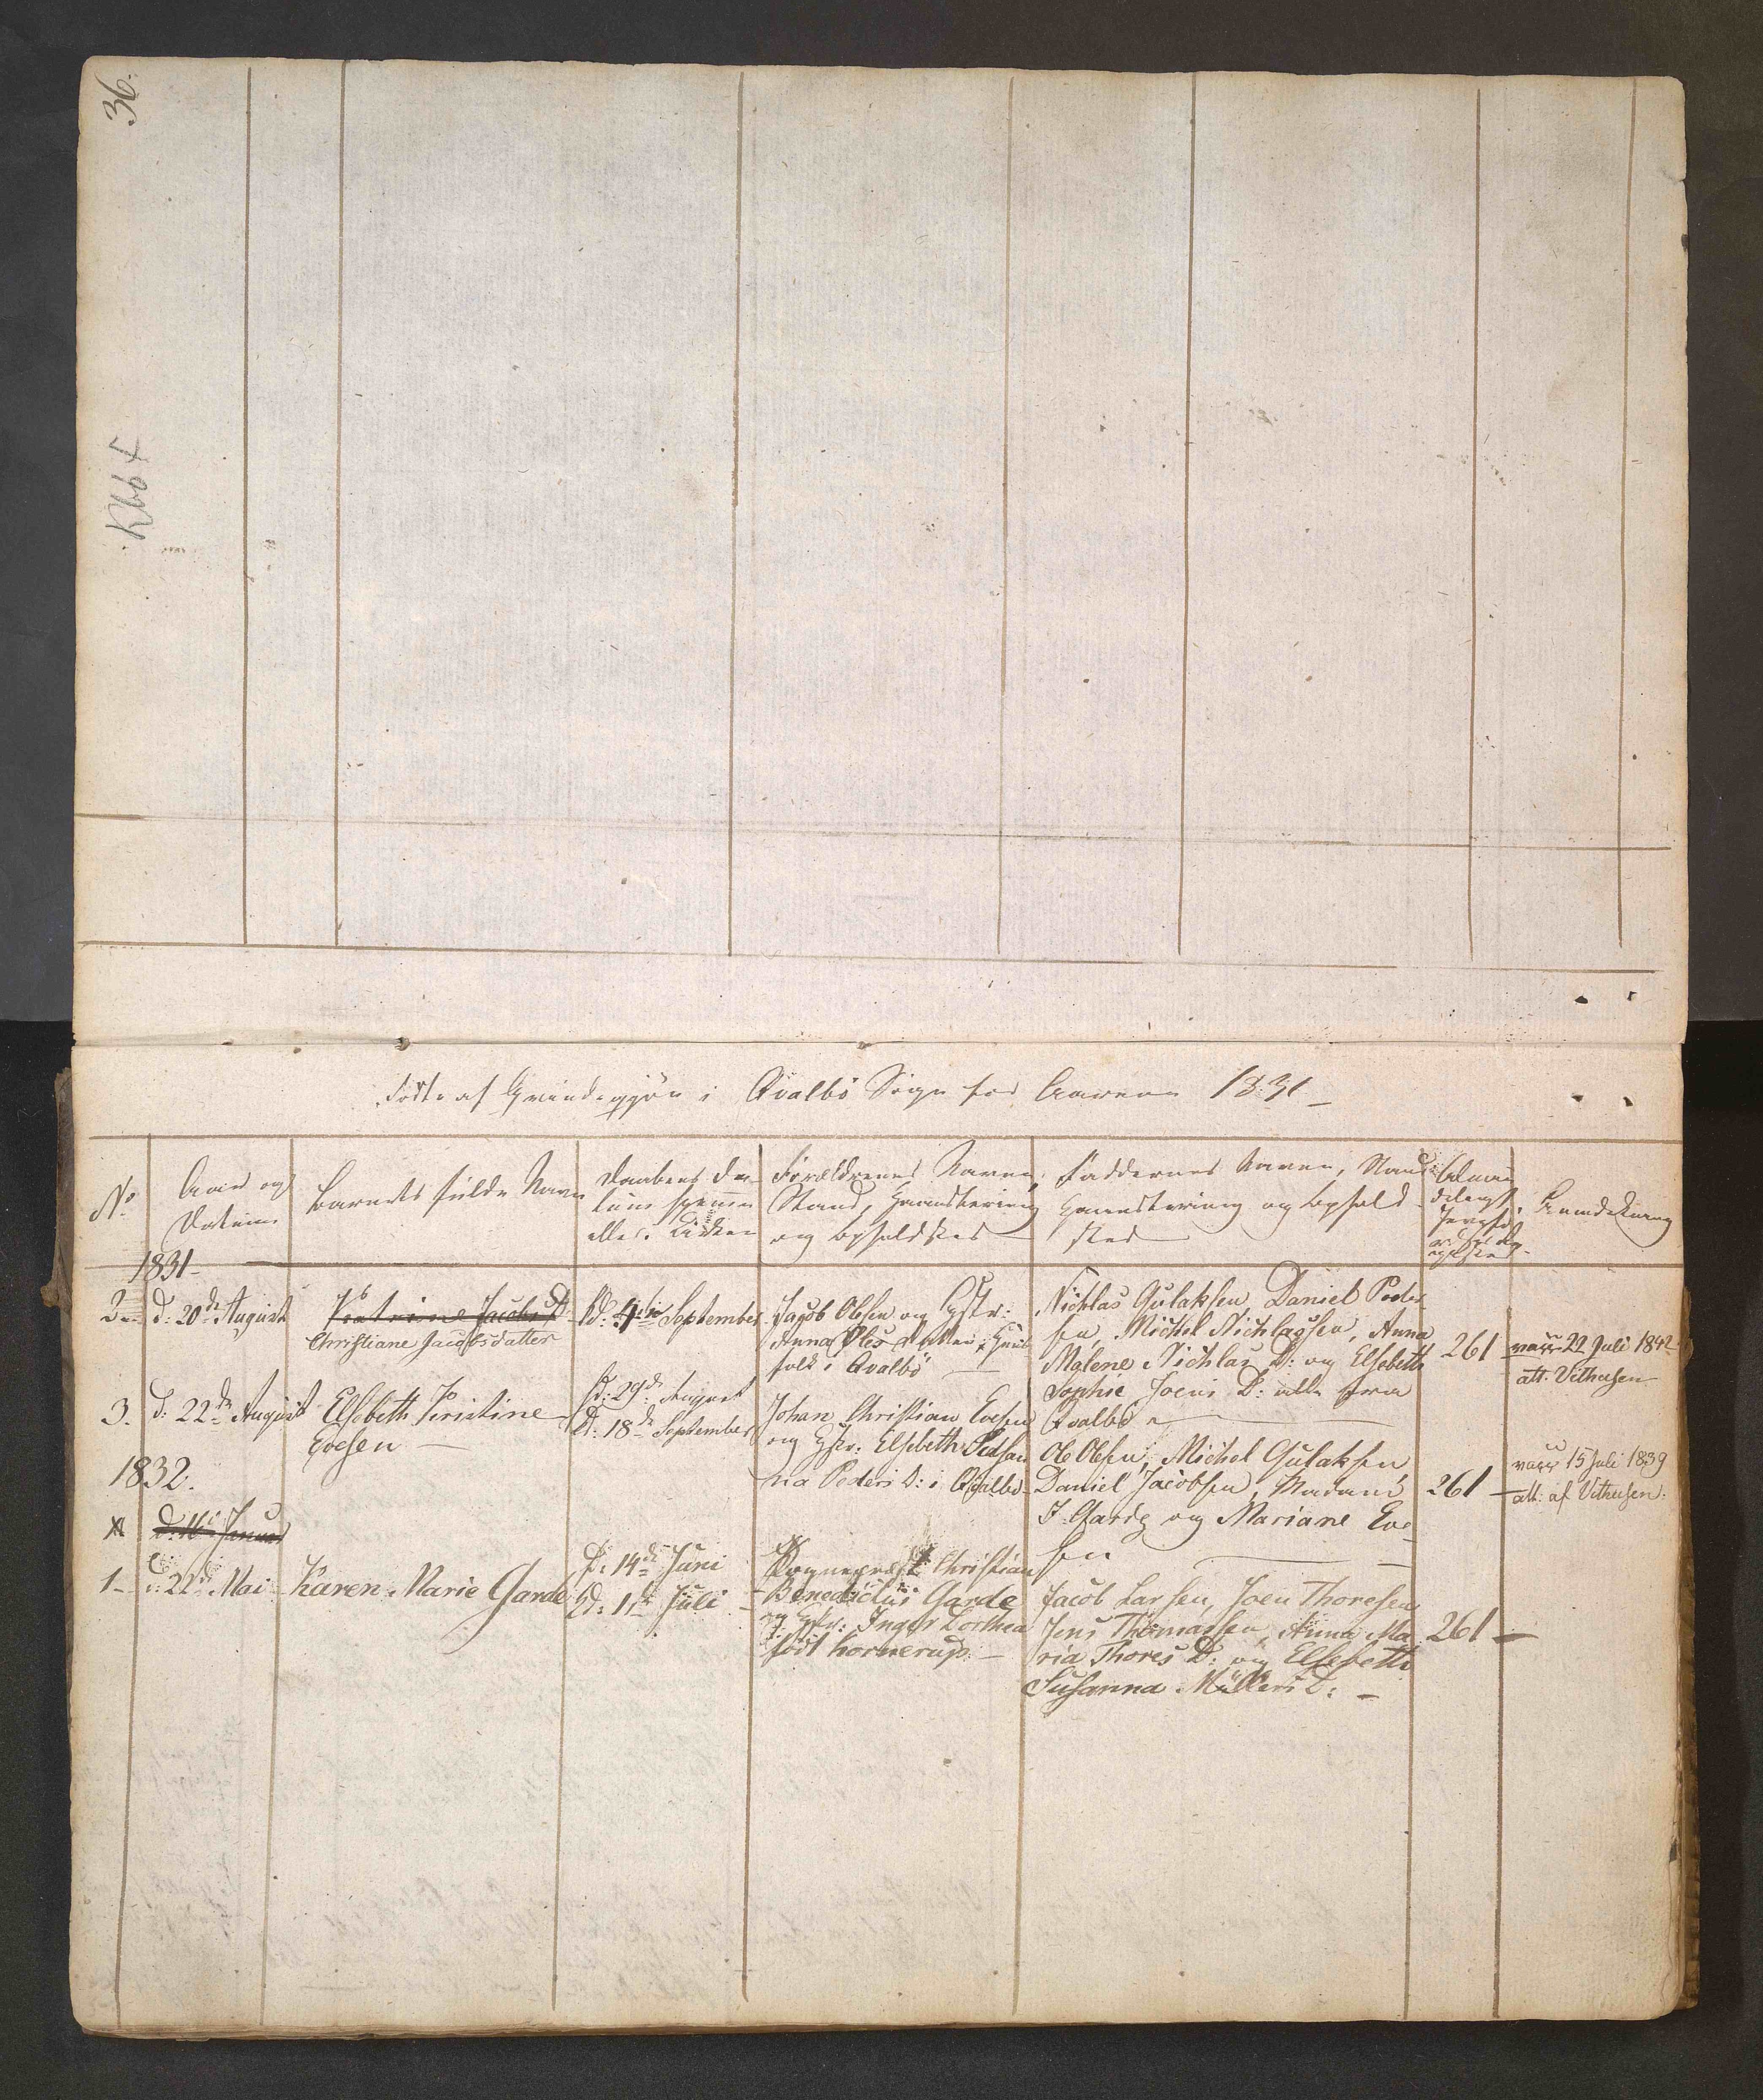 36.
Kbb 4
Födte af Qvindekjön i Qvalbö Sogn for Aarene 1831
No
Aar og
Datum
Barnets fulde Navn
Daabens Da-
tum hjemme
eller i Kirken
Forældrenes Navn,
Stand, Haandtering
og Opholdsted
Faddernes Navn, Stand
Haandtering og Ophold
sted
Anmærkning
1831
2
d: 20de August
Petrine Jacobs D
Christiane Jacobsdatter
d: 4de September
Jacob Olsen og Hustr:
Anna Oles datter, Huus
folk i Qvalbö
Nichlas Gulaksen, Daniel Peder
sen, Michel Nichlassen, Anna
Malene Nichlas D: og Elsebeth
Sophie Joens D: alle fra
Qvalbö
261
vacc 22 Juli 1842
att. Vithusen
3.
d: 22de August
Elsebeth Kristine
Evesen
d: 29de August
d: 18de September
Johan Christian Evesen
og Hstr: Elsebeth Susan
na Peders D: i Qvalbö
Ole Olsen, Michel Gulaksen
Daniel Jacobsen, Madame
I. Garde og Mariane Eve
sen
261
vacc 15 Juli 1839
att: af Vithusen:
1832.
1
d: 16 Januar
1
d: 22de Mai
Karen Marie Garde
d: 14de Juni
d: 1ste Juli
Sognepræst Christian
Benedictus Garde
og Hstr: Inger Dorthea
född Hornerup.
Jacob Larsen, Joen Thoresen
Jens Thomassen, Anna Ma
ria Thores D: og Elsebeth
Susanna Müllers D:
261